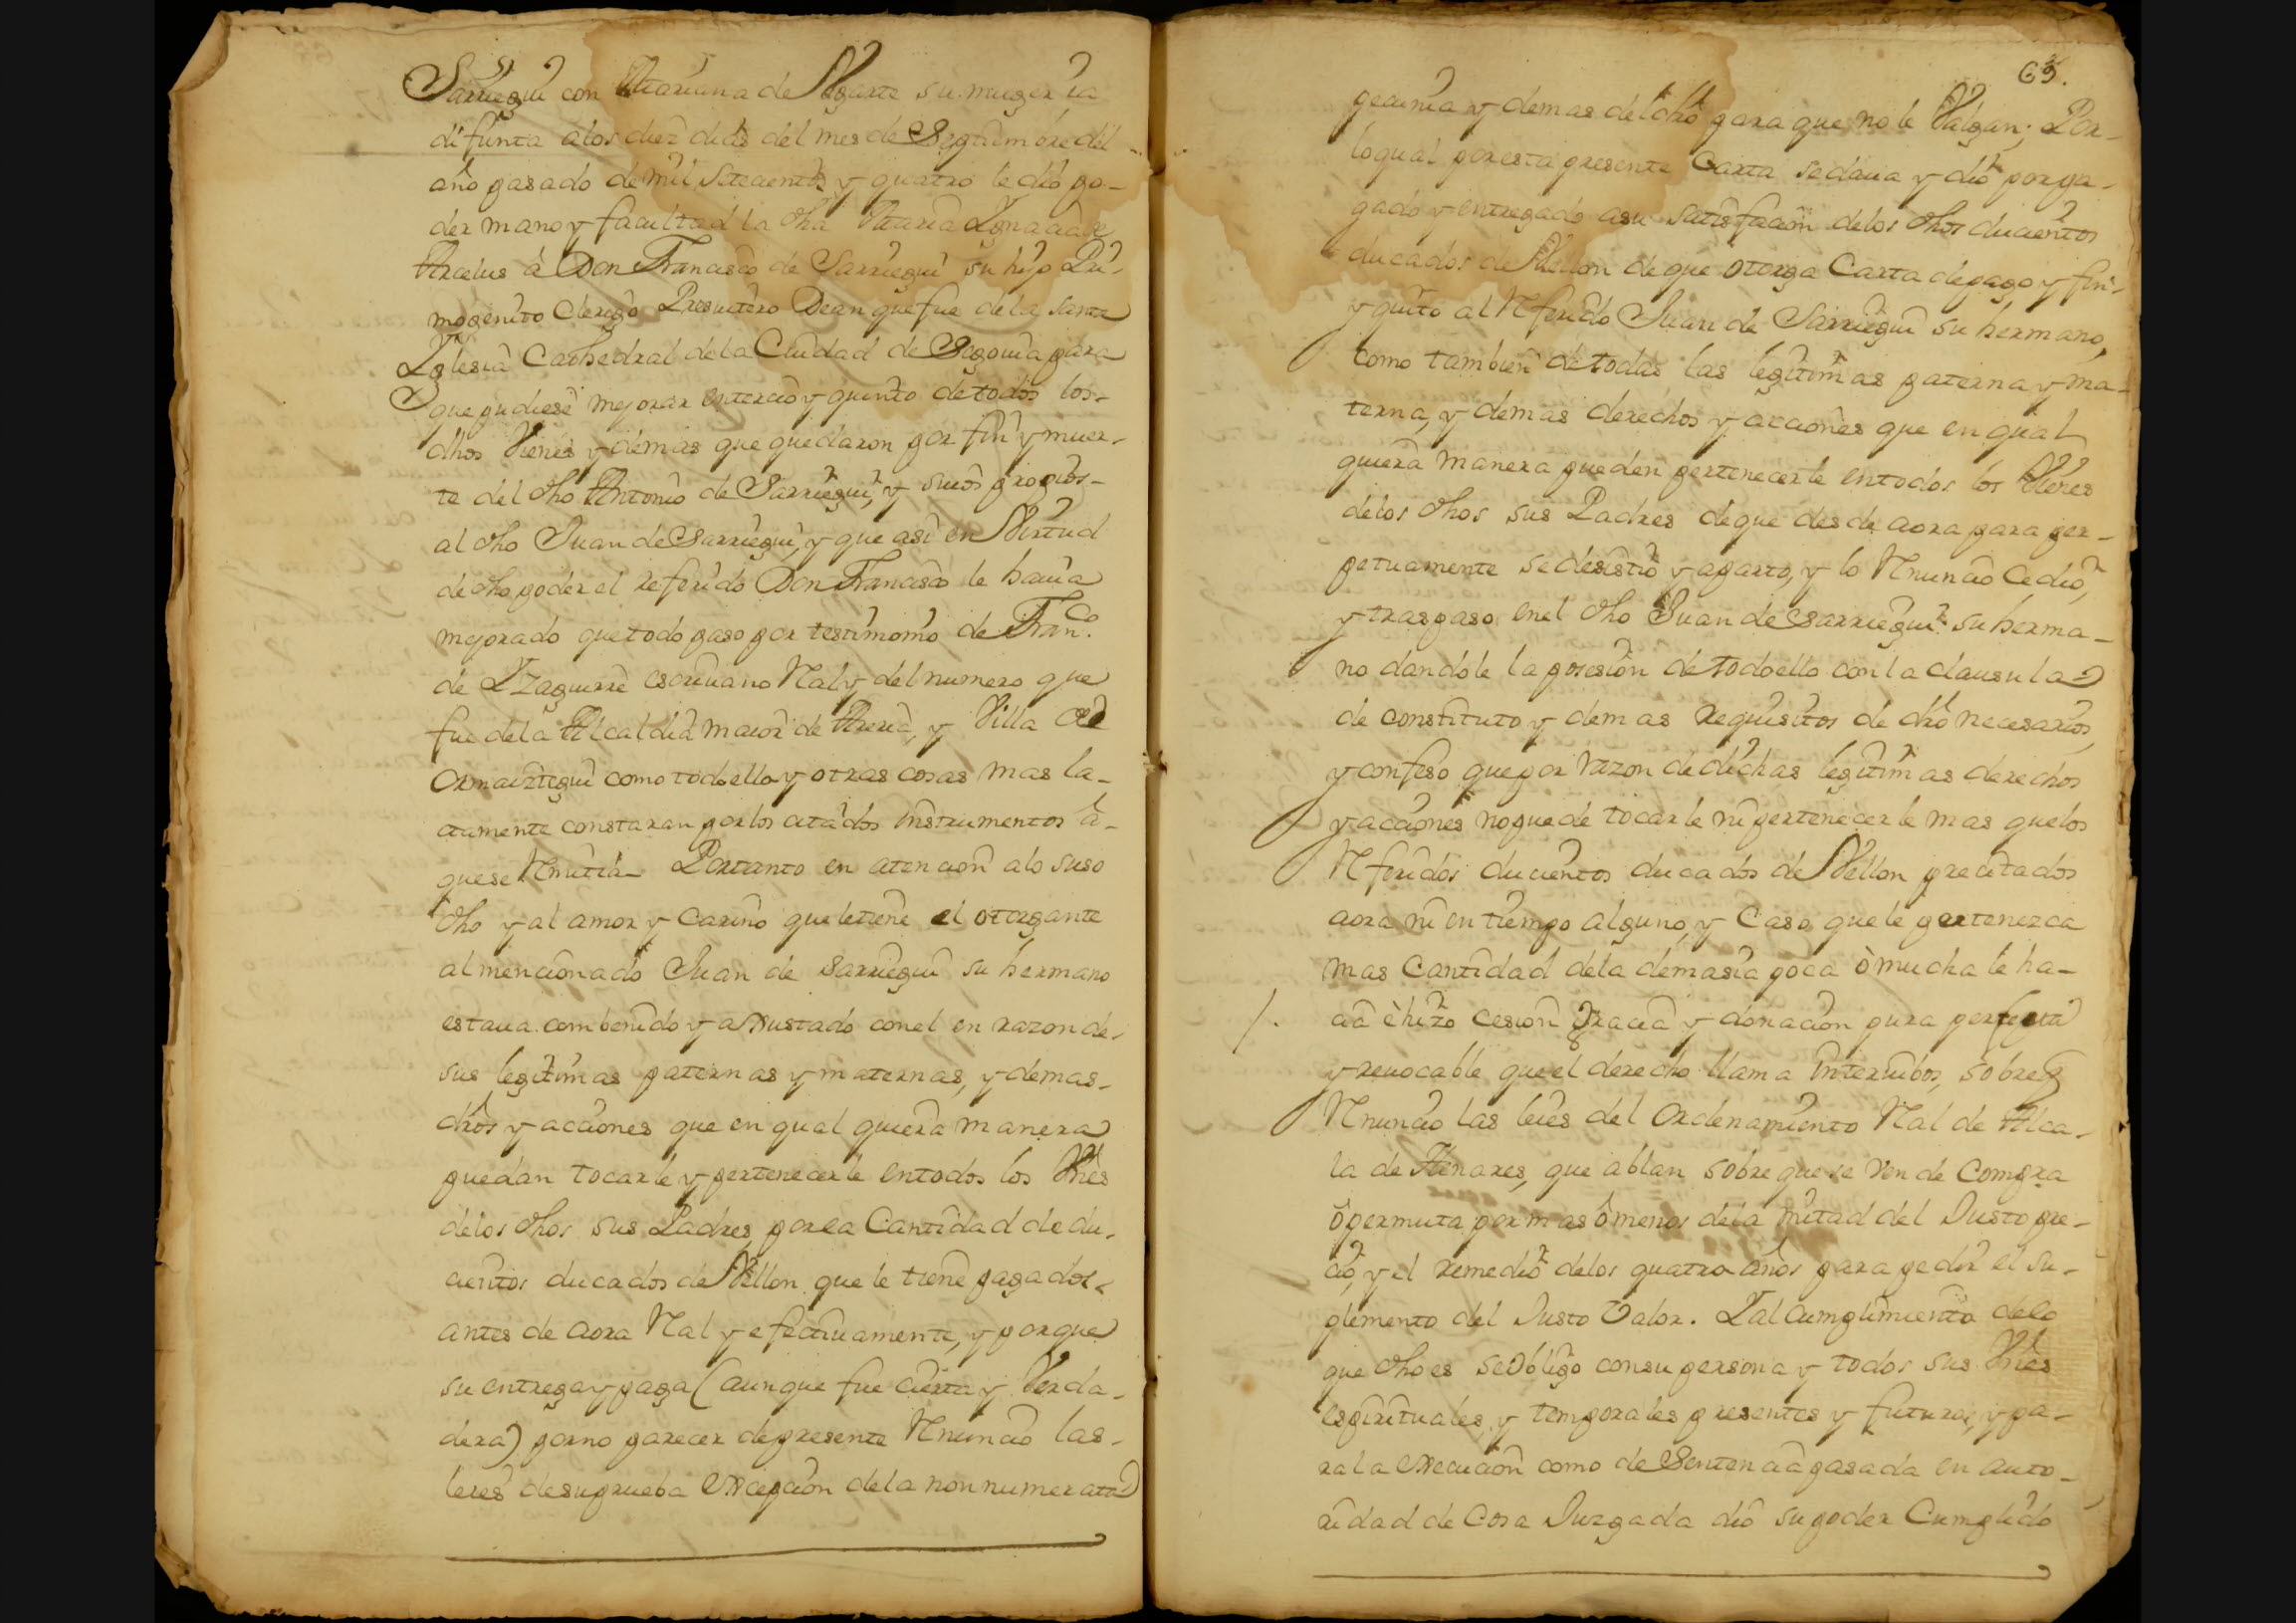 Sarriegui con Mariana de Ugarte su muger ia
difunta â los diez dias del mes de Septiembre del
año pasado de mil setecientos y quatro le dió po-
der mano y facultad la dha Maria Ygnacia de
Arcelus â Don Francisco de Sarriegui su hijo Pri-
mogenito Clerigo Presuitero Dean que fue de la Santa
Yglesia Cathedral de la Ciudad de Segouia para
que pudiese mejorar en tercio y quinto de todos los
dhos Vienes y demas que quedaron por fin y muer-
te del dho Antonio de Sarriegui, y suios propios
al dho Juan de Sarriegui, y que asi en Virtud
de dho poder el referido Don Francisco le hauia
mejorado que todo paso por testimonio de Franco.
de Yzaguirre escriuano Ral y del numero que
fue dela Alcaldia maior de Areria, y Villa de
Ormaiztegui como todo ello y otras cosas mas la-
tamente constaran por los citados instrumentos â
que se Remitia Portanto en atencion alo suso
dho y al amor y Cariño que le tiene el otorgante
al mencionado Juan de Sarriegui su hermano
estaua combenido y axustado con el en razon de
sus legitimas paternas y maternas, y demas
dros y acciones que en qual quiera manera
puedan tocarle y pertenecerle en todos los Vnes
delos dhos sus Padres por la Cantidad de du-
cientos ducados de Vellon que le tiene pagados
antes de aora Ral y efectiuamente, y porque
su entrega y paga (aunque fue cierta y Verda-
dera) por no parecer de presente Renuncio las
leies desu prueba excepcion dela non numerata
63.
pecunia y demas del dro para que no le Valgan; Por
lo qual por esta presente Carta se daua y dió por pa-
gado y entregado asu satisfacion delos dhos ducientos
ducados de Vellon de que otorga Carta de pago y fin-
y quito al Referido Juan de Sarriegui su hermano,
como tambien de todas las legitimas paterna y ma-
terna, y demas derechos y acciones que en qual
quiera manera pueden pertenecerle en todos los Vienes
delos dhos sus Padres de que desde aora para per-
petuamente se desistió y aparto, y lo Renuncio Cedio,
y traspaso en el dho Juan de Sarriegui su herma-
no dandole la posesion de todo ello con la clausula
de constituto y demas requisitos de dro necesarios,
y confeso que por razon de dichas legitimas derechos
y acciones no puede tocarle ni pertenecerle mas que los
Referidos ducientos ducados de Vellon precitados
aora ni en tiempo alguno, y Caso que le pertenezca
mas Cantidad dela demasia poca ô mucha le ha-
/. cia è hizo cesion gracia y donacion pura perfecta
yrreuocable que el derecho llama interuibos, sobre q
Renuncio las leies del Ordenamiento Ral de Alca-
la de Henares, que ablan sobre que se vende Compra
ô permuta por mas ô menos dela mitad del Justo pre-
cio, y el remedio delos quatro años para pedir el su-
plemento del Justo Valor. Y al cumplimiento delo
que dho es se obligo con su persona y todos sus Vnes
espirituales, y temporales presentes y futuros, y pa-
ra la execucion como de Sentencia pasada en auto-
ridad de Cosa Juzgada dió su poder Cumplido